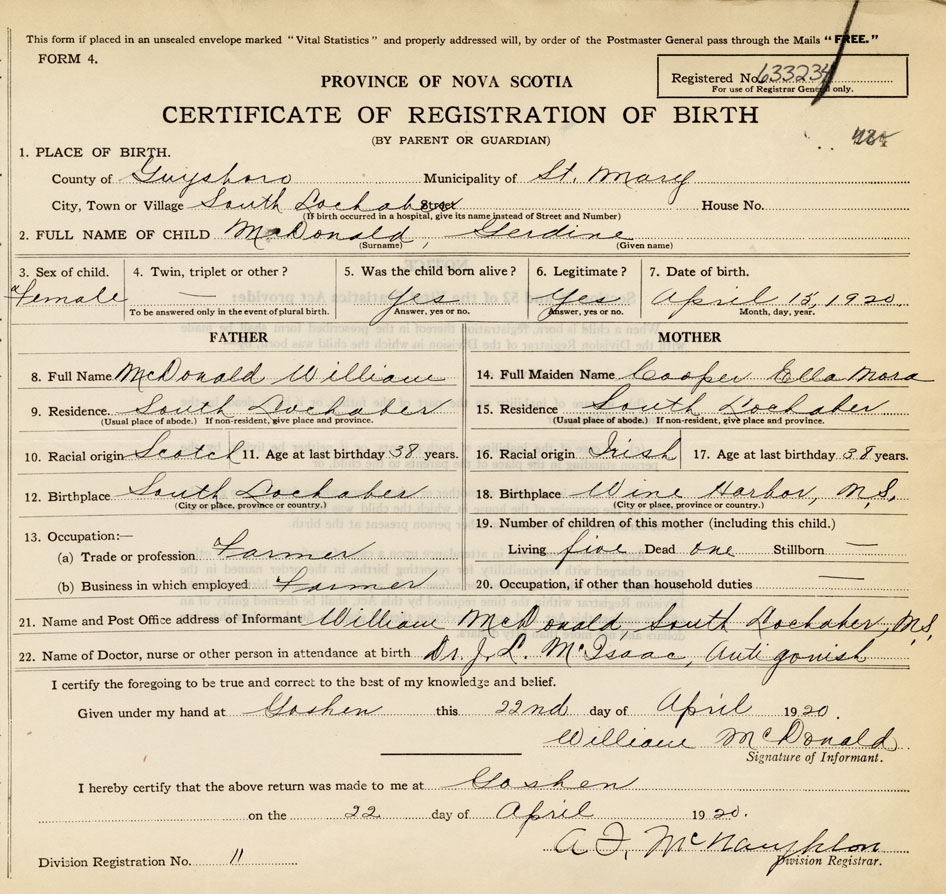 This form if placed in an unsealed envelope marked "Vital Statistics" and properly addressed will, by order of the Postmaster General pass through the Mails "FREE."
FORM 4.
PROVINCE OF NOVA SCOTIA
Registered No. 633234
For use of Registrar General only.
CERTIFICATE OF REGISTRATION OF BIRTH
(BY PARENT OR GUARDIAN)
1. PLACE OF BIRTH.
County of Guysboro Municipality of St. Mary
City, Town or Village South Lochaber Street House No.
(If birth occurred in a hospital, give its name instead of Street and Number)
2. FULL NAME OF CHILD McDonald, Gerdine
(Surname) (Given name)
3. Sex of child. 4. Twin, triplet or other? 5. Was the child born alive? 6. Legitimate? 7. Date of birth.
Female — Yes Yes April 15, 1920
To be answered only in the event of plural birth. Answer, yes or no. Answer, yes or no. Month, day, year.
FATHER MOTHER
8. Full Name McDonald William 14. Full Maiden Name Cooper Ella Mora
9. Residence. South Lochaber 15. Residence South Lochaber
(Usual place of abode.) If non-resident, give place and province. (Usual place of abode.) If non-resident, give place and province.
10. Racial origin Scotch 11. Age at last birthday 38 years. 16. Racial origin Irish 17. Age at last birthday 38 years.
12. Birthplace South Lochaber 18. Birthplace Wine Harbor, N.S.
(City or place, province or country.) (City or place, province or country.)
13. Occupation:— 19. Number of children of this mother (including this child.)
(a) Trade or profession Farmer Living five Dead one Stillborn —
(b) Business in which employed Farmer 20. Occupation, if other than household duties —
21. Name and Post Office address of Informant William McDonald South Lochaber, N.S.
22. Name of Doctor, nurse or other person in attendance at birth Dr. J. L. McIsaac, Antigonish
I certify the foregoing to be true and correct to the best of my knowledge and belief.
Given under my hand at Goshen this 22nd day of April 1920.
William McDonald
Signature of Informant.
I hereby certify that the above return was made to me at Goshen
on the 22 day of April 1920.
A. F. McNaughton
Division Registration No. 11 Division Registrar.